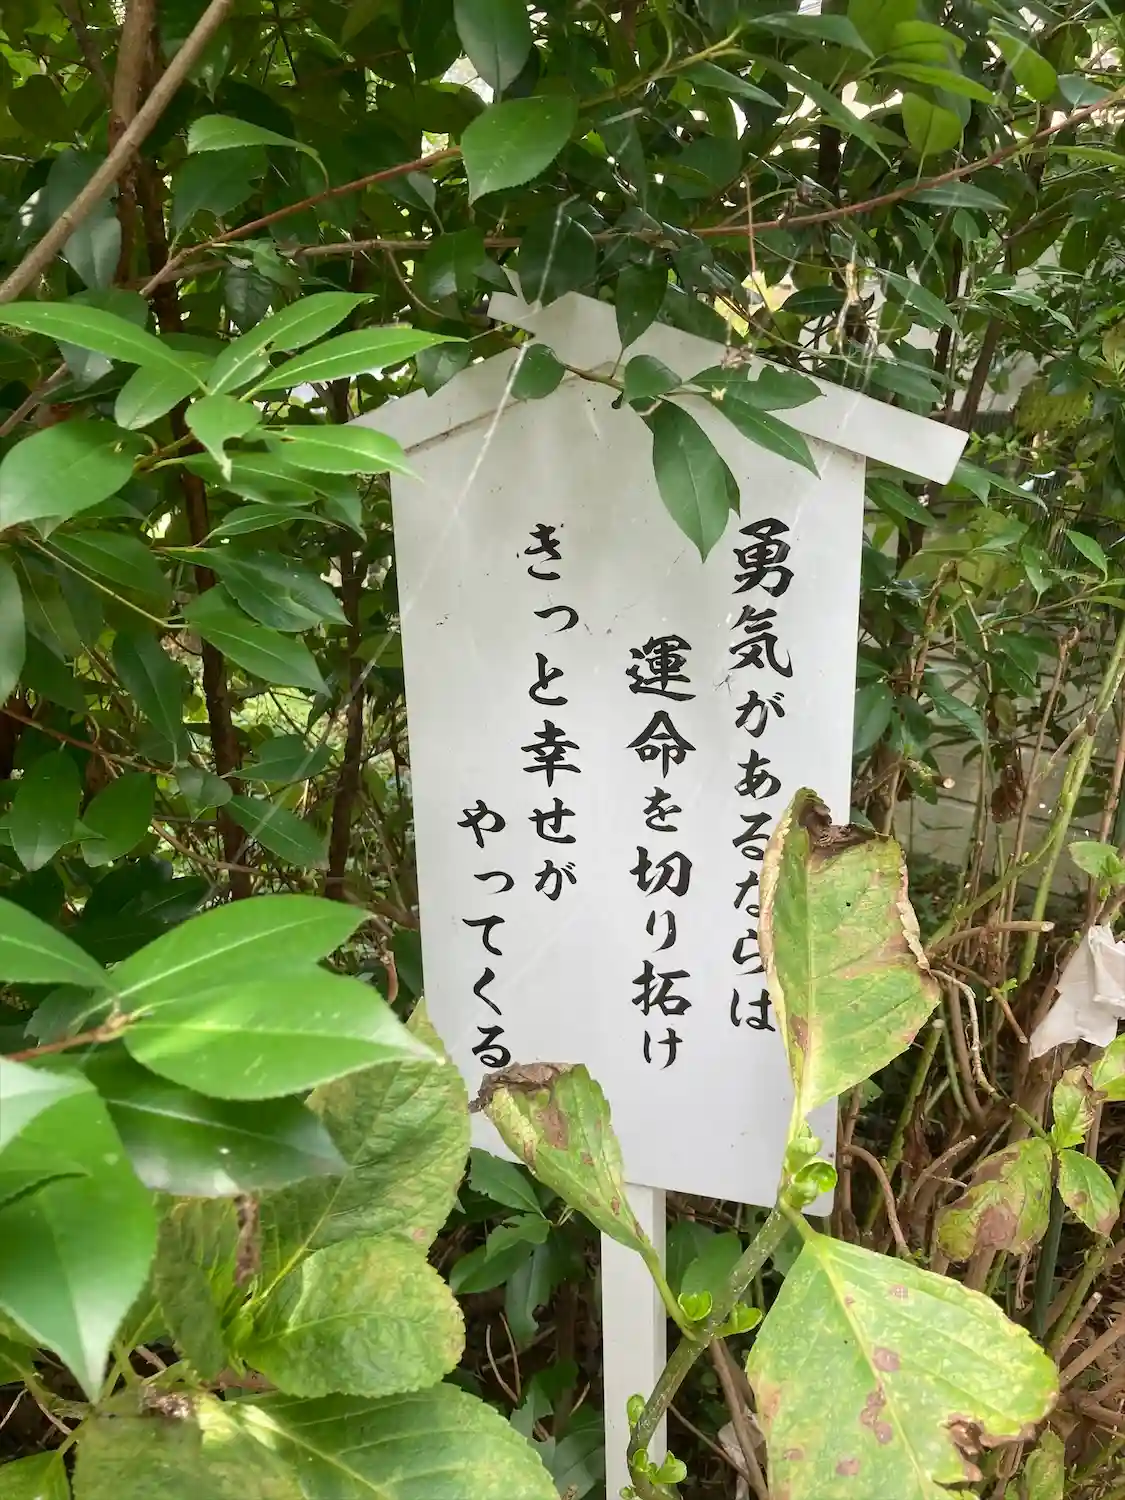 勇気があるならは
運命を切り拓け
きっと幸せが
やってくる